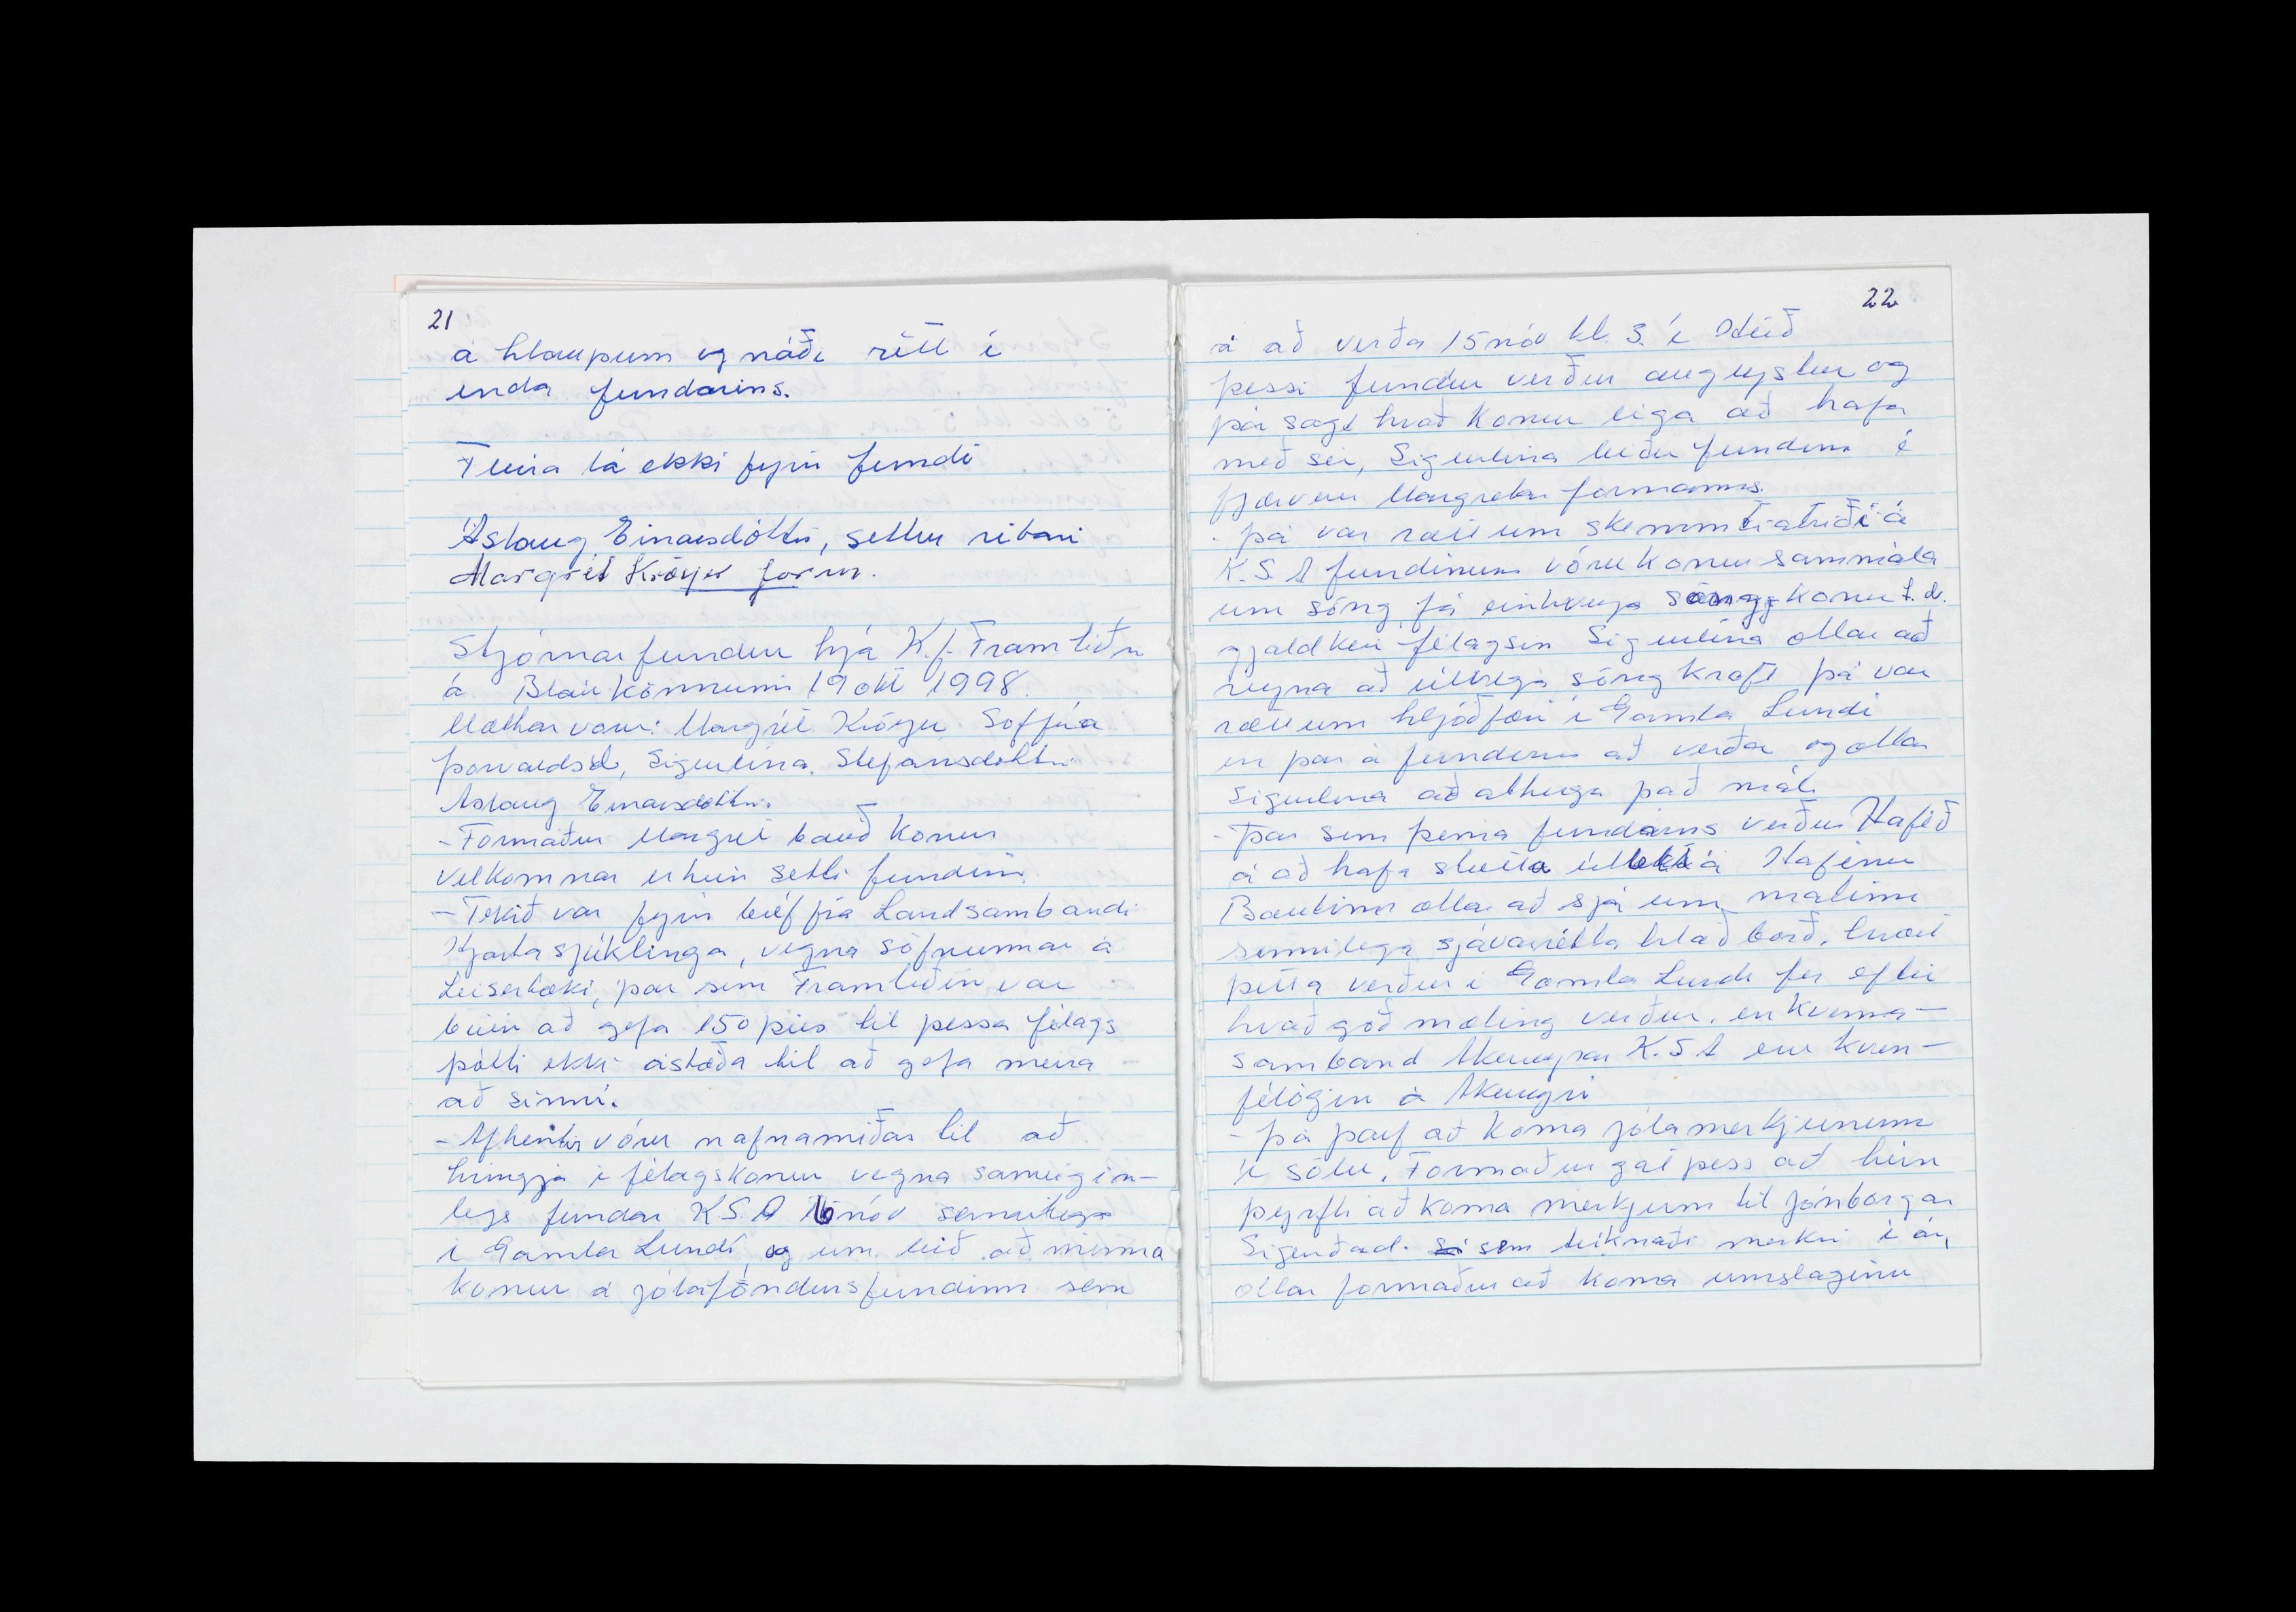 21
á hlaupum og náði rétt í
enda fundarins.
Fleira lá ekki fyrir fundi
Áslaug Einarsdóttir, settur ritari
Margrét Kröyer form.
Stjórnarfundur hjá K.f. Framtíðin
á Bláu könnunni 19 okt 1998.
Mættar voru: Margrét Kröyer Soffía
Þorvaldsd, Sigurlína Stefánsdóttir
Áslaug Einarsdóttir.
- Formaður Margrét bauð konur
velkomnar er hún setti fundinn.
- Tekið var fyrir bréf frá Landsambandi
Hjartasjúklinga, vegna söfnunnar á
Leisertæki, þar sem Framtíðin var
búin að gefa 150 þús til þessa félags
þótti ekki ástæða til að gefa meira
að sinni.
- Afhentir vóru nafnamiðar til að
hringja í félagskonur vegna sameigin-
legs fundar K.S.A 16 nóv sennilega
í Gamla Lundi, og um leið að minna
konur á jólaföndursfundinn sem
22
á að verða 15 nóv kl. 3. í Hlíð
þessi fundur verður auglýstur og
þá sagt hvað konur eiga að hafa
með sér, Sigurlína leiðir fundinn í
fjærveru Margrétar formanns.
- þá var rætt um skemmtiatriði á
K.S.A fundinum vóru konur sammála
um söng, fá einhverja söngkonu t.d.
gjaldkeri félagsins Sigurlína ætlar að
reyna að útvega söng kraft þá var
rætt um hljóðfæri í Gamla Lundi
en þar á fundurinn að verða og ætlar
Sigurlína að athuga það mál.
- Þar sem þema fundarins verður Hafið
á að hafa skreita útlit á Hafinu
Bautinn ætlar að sjá um matinn
sennilega sjávarrétta hlaðborð, hvort
þetta verður í Gamla Lundi fer eftir
hvað góð mæting verður. en Kvenna-
samband Akureyrar K.S.A eru kven-
félögin á Akureyri
- þá þarf að koma jólamerkjunum
í sölu, Formaður gat þess að hún
þyrfti að koma merkjum til Jónborgar
Sigurðard. sem teiknaði merkin í ár,
ætlar formaður að koma umslaginu